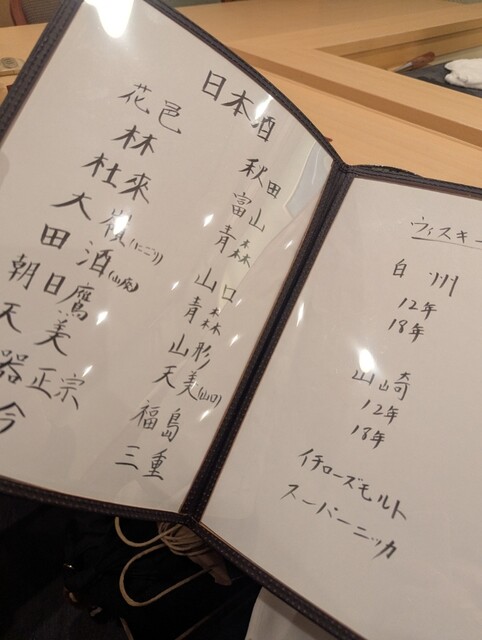 日本酒
花邑 秋田
林 富山
杜來 青森
大嶺(にごり) 山口
田酒(山廃) 青森
朝日鷹 山形
天美 天美(山口)
器正宗 福島
今 三重
ウィスキー
白州
12年
18年
山崎
12年
18年
イチローズモルト
スーパーニッカ